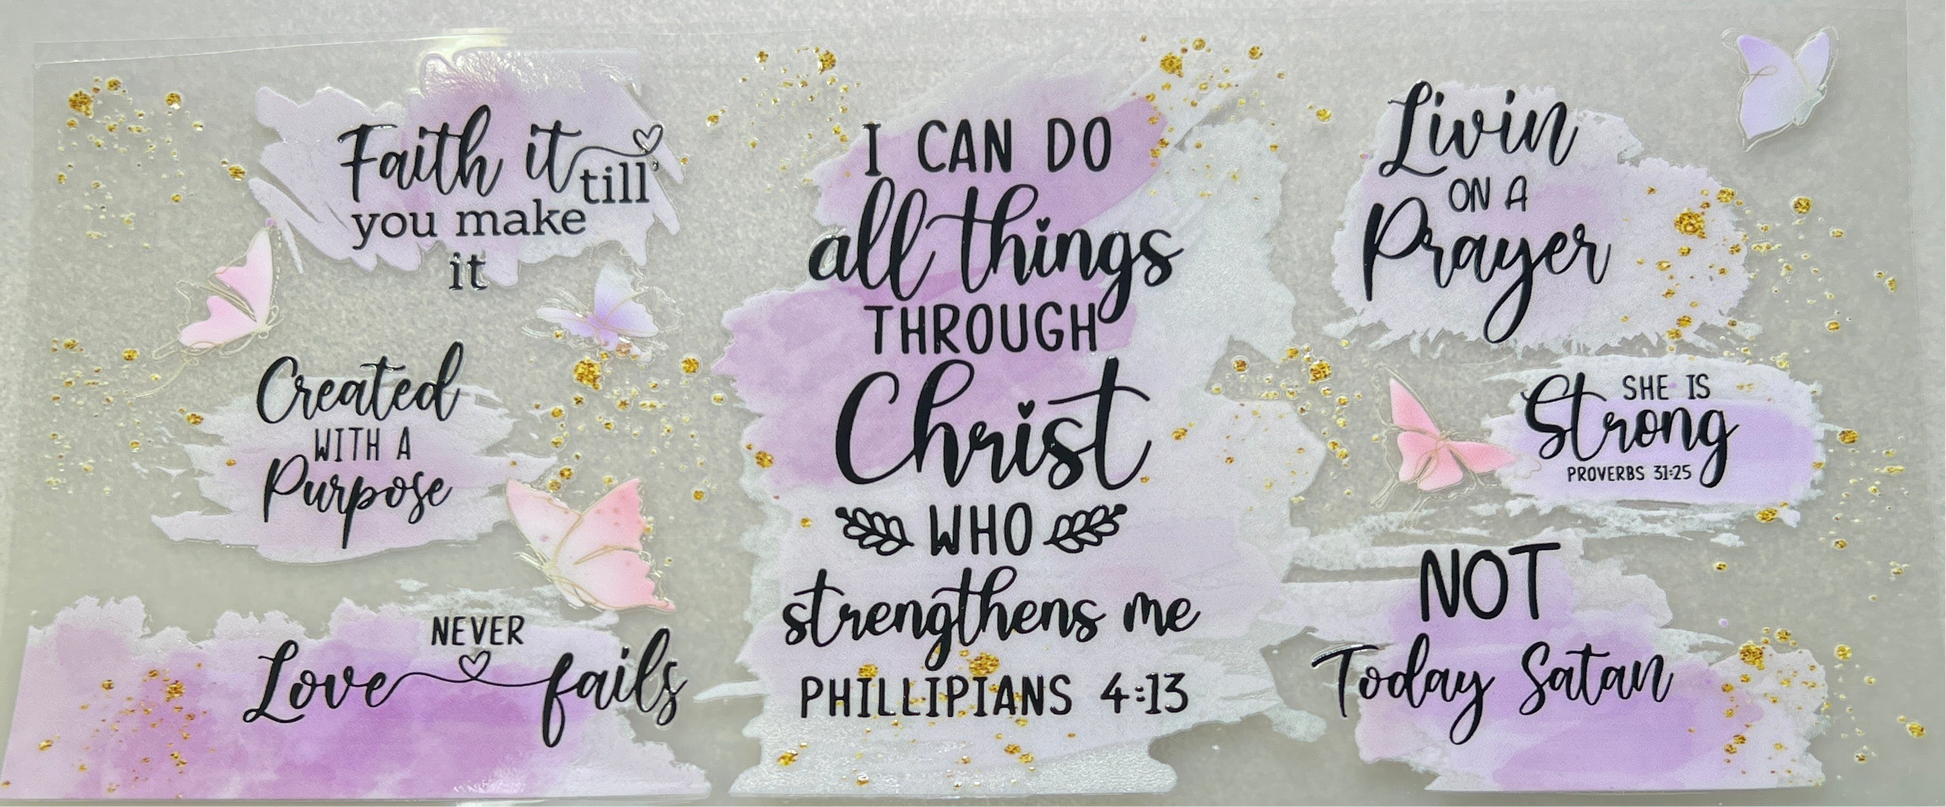 Faith it till
you make
it
Created
WITH A
Purpose
NEVER
Love fails
I CAN DO
all things
THROUGH
Christ
WHO
strengthens me
PHILLIPIANS 4:13
Livin
ON A
Prayer
SHE IS
Strong
PROVERBS 31:25
NOT
Today Satan